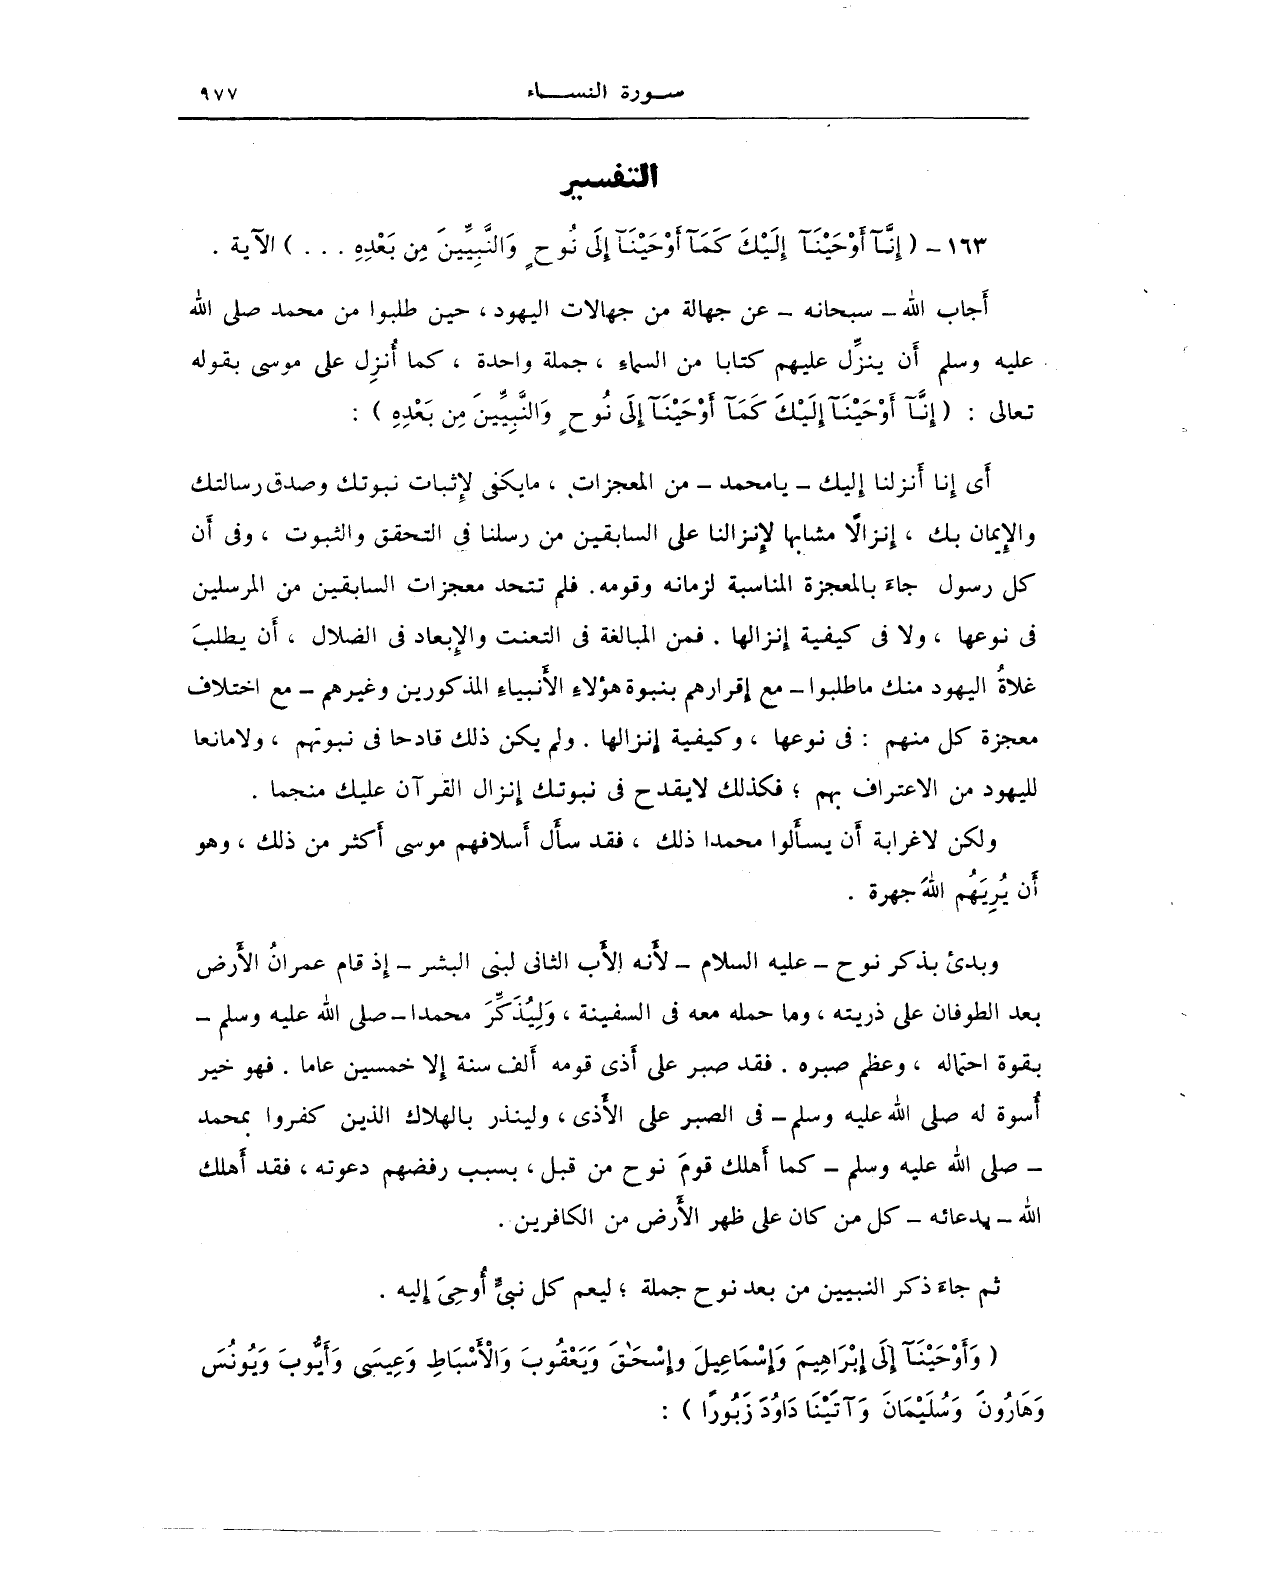 سورة النساء ٩٧٧
التفسير
١٦٣ - ( إِنَّآ أَوْحَيْنَآ إِلَيْكَ كَمَآ أَوْحَيْنَآ إِلَى نُوحٍ وَالنَّبِيِّينَ مِن بَعْدِهِ . . . ) الآية .
أجاب الله - سبحانه - عن جهالة من جهالات اليهود ، حين طلبوا من محمد صلى الله
عليه وسلم أن ينزِّل عليهم كتابا من السماء ، جملة واحدة ، كما أُنزِل على موسى بقوله
تعالى : ( إِنَّآ أَوْحَيْنَآ إِلَيْكَ كَمَآ أَوْحَيْنَآ إِلَى نُوحٍ وَالنَّبِيِّينَ مِن بَعْدِهِ ) :
أى إنا أنزلنا إليك - يامحمد - من المعجزات ، مايكفى لإثبات نبوتك وصدق رسالتك
والإيمان بك ، إنزالًا مشابها لإنزالنا على السابقين من رسلنا فى التحقق والثبوت ، وفى أن
كل رسول جاءَ بالمعجزة المناسبة لزمانه وقومه. فلم تتحد معجزات السابقين من المرسلين
فى نوعها ، ولا فى كيفية إنزالها . فمن المبالغة فى التعنت والإبعاد فى الضلال ، أن يطلبَ
غلاةُ اليهود منك ماطلبوا - مع إقرارهم بنبوة هؤلاءِ الأنبياءِ المذكورين وغيرهم - مع اختلاف
معجزة كل منهم : فى نوعها ، وكيفية إنزالها . ولم يكن ذلك قادحا فى نبوتهم ، ولامانعا
لليهود من الاعتراف بهم ؛ فكذلك لايقدح فى نبوتك إنزال القرآن عليك منجما .
ولكن لاغرابة أن يسألوا محمدا ذلك ، فقد سأل أسلافهم موسى أكثر من ذلك ، وهو
أن يُرِيَهُم اللهَ جهرة .
وبدئ بذكر نوح - عليه السلام - لأنه الأب الثانى لبنى البشر - إذ قام عمرانُ الأرض
بعد الطوفان على ذريته ، وما حمله معه فى السفينة ، وَلِيُذَكِّرَ محمدا - صلى الله عليه وسلم -
بقوة احتماله ، وعظم صبره . فقد صبر على أذى قومه ألف سنة إلا خمسين عاما . فهو خير
أُسوة له صلى الله عليه وسلم - فى الصبر على الأذى ، ولينذر بالهلاك الذين كفروا بمحمد
- صلى الله عليه وسلم - كما أهلك قومَ نوح من قبل ، بسبب رفضهم دعوته ، فقد أهلك
الله - بدعائه - كل من كان على ظهر الأرض من الكافرين .
ثم جاءَ ذكر النبيين من بعد نوح جملة ؛ ليعم كل نبىٍّ أُوحِىَ إليه .
( وَأَوْحَيْنَآ إِلَى إِبْرَاهِيمَ وَإِسْمَاعِيلَ وإِسْحَٰقَ وَيَعْقُوبَ وَالْأَسْبَاطِ وَعِيسَى وَأَيُّوبَ وَيُونُسَ
وَهَارُونَ وَسُلَيْمَانَ وَآتَيْنَا دَاوُدَ زَبُورًا ) :